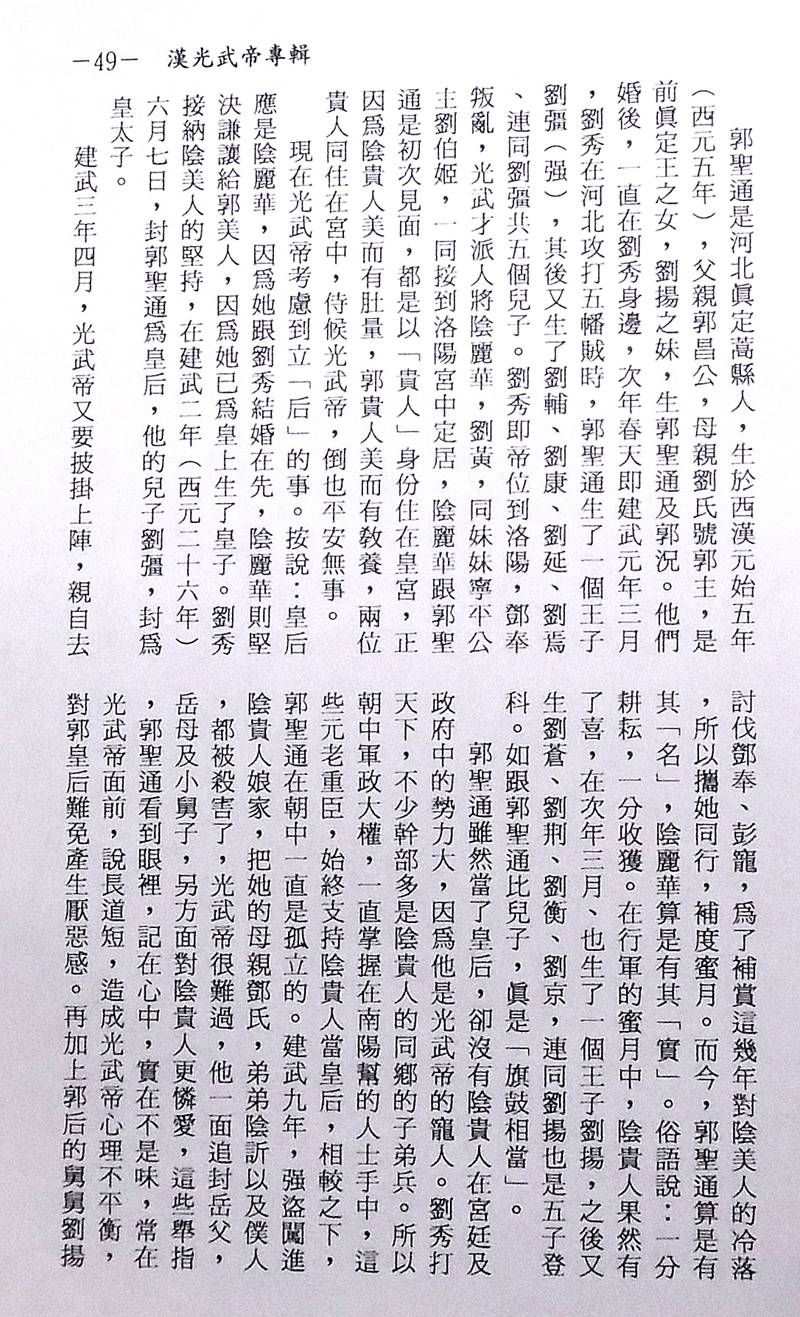 —49— 漢光武帝專輯
郭聖通是河北眞定蒿縣人，生於西漢元始五年
（西元五年），父親郭昌公，母親劉氏號郭主，是
前眞定王之女，劉揚之妹，生郭聖通及郭況。他們
婚後，一直在劉秀身邊，次年春天即建武元年三月
，劉秀在河北攻打五幡賊時，郭聖通生了一個王子
劉彊（强），其後又生了劉輔、劉康、劉延、劉焉
、連同劉彊共五個兒子。劉秀即帝位到洛陽，鄧奉
叛亂，光武才派人將陰麗華，劉黃，同妹妹寧平公
主劉伯姬，一同接到洛陽宮中定居，陰麗華跟郭聖
通是初次見面，都是以「貴人」身份住在皇宮，正
因爲陰貴人美而有肚量，郭貴人美而有教養，兩位
貴人同住在宮中，侍候光武帝，倒也平安無事。
現在光武帝考慮到立「后」的事。按說：皇后
應是陰麗華，因爲她跟劉秀結婚在先，陰麗華則堅
決謙讓給郭美人，因爲她已爲皇上生了皇子。劉秀
接納陰美人的堅持，在建武二年（西元二十六年）
六月七日，封郭聖通爲皇后，他的兒子劉彊，封爲
皇太子。
建武三年四月，光武帝又要披掛上陣，親自去
討伐鄧奉、彭寵，爲了補賞這幾年對陰美人的冷落
，所以攜她同行，補度蜜月。而今，郭聖通算是有
其「名」，陰麗華算是有其「實」。俗語說：一分
耕耘，一分收獲。在行軍的蜜月中，陰貴人果然有
了喜，在次年三月、也生了一個王子劉揚，之後又
生劉蒼、劉荆、劉衡、劉京，連同劉揚也是五子登
科。如跟郭聖通比兒子，眞是「旗鼓相當」。
郭聖通雖然當了皇后，卻沒有陰貴人在宮廷及
政府中的勢力大，因爲他是光武帝的寵人。劉秀打
天下，不少幹部多是陰貴人的同鄉的子弟兵。所以
朝中軍政大權，一直掌握在南陽幫的人士手中，這
些元老重臣，始終支持陰貴人當皇后，相較之下，
郭聖通在朝中一直是孤立的。建武九年，强盜闖進
陰貴人娘家，把她的母親鄧氏，弟弟陰訢以及僕人
，都被殺害了，光武帝很難過，他一面追封岳父，
岳母及小舅子，另方面對陰貴人更憐愛，這些舉指
，郭聖通看到眼裡，記在心中，實在不是味，常在
光武帝面前，說長道短，造成光武帝心理不平衡，
對郭皇后難免產生厭惡感。再加上郭后的舅舅劉揚